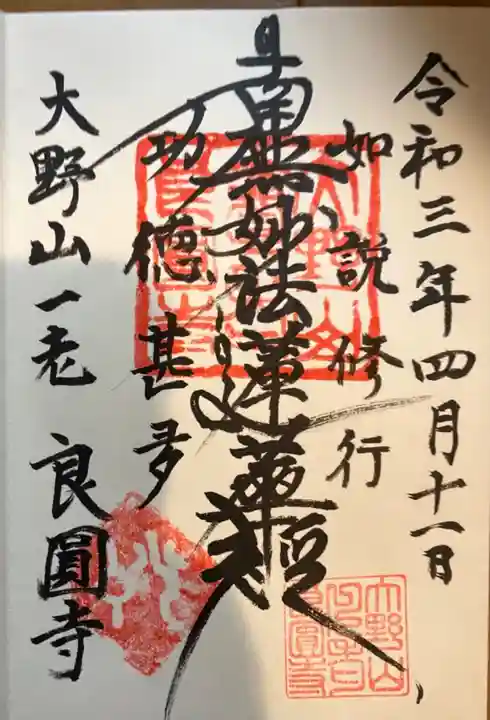 令和三年四月十一日
如説修行
南無妙法蓮華経
功徳甚多
大野山一老 良圓寺